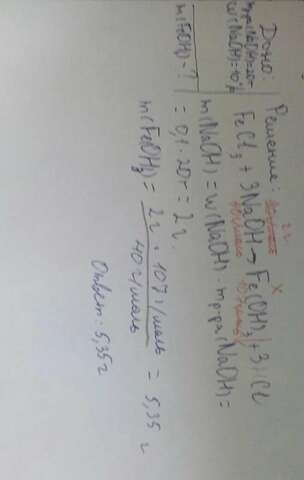 Дано:
mр-ра(NaOH)=20г
w(NaOH)=10%
m(Fe(OH)3)-?
Решение:
2г x
FeCl3 + 3NaOH → Fe(OH)3↓ + 3NaCl
40г/моль 107г/моль
m(NaOH) = w(NaOH)·mр-ра(NaOH)=
= 0,1·20г = 2г.
m(Fe(OH)3) = 2г · 107г/моль / 40г/моль = 5,35 г
Ответ: 5,35г